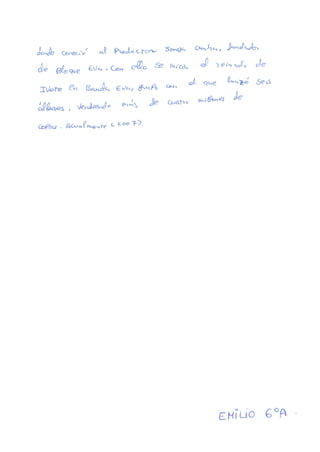 donde conoció al Productor Jonga Cunha, fundador
de Bloque Eva. Con ello se inicia el reinado de
Ivete en Banda Eva, grupo con el que lanzó seis
álbunes, vendiendo más de cuatro millones de
copias. Actualmente (2007)
EMILIO 6ºA.